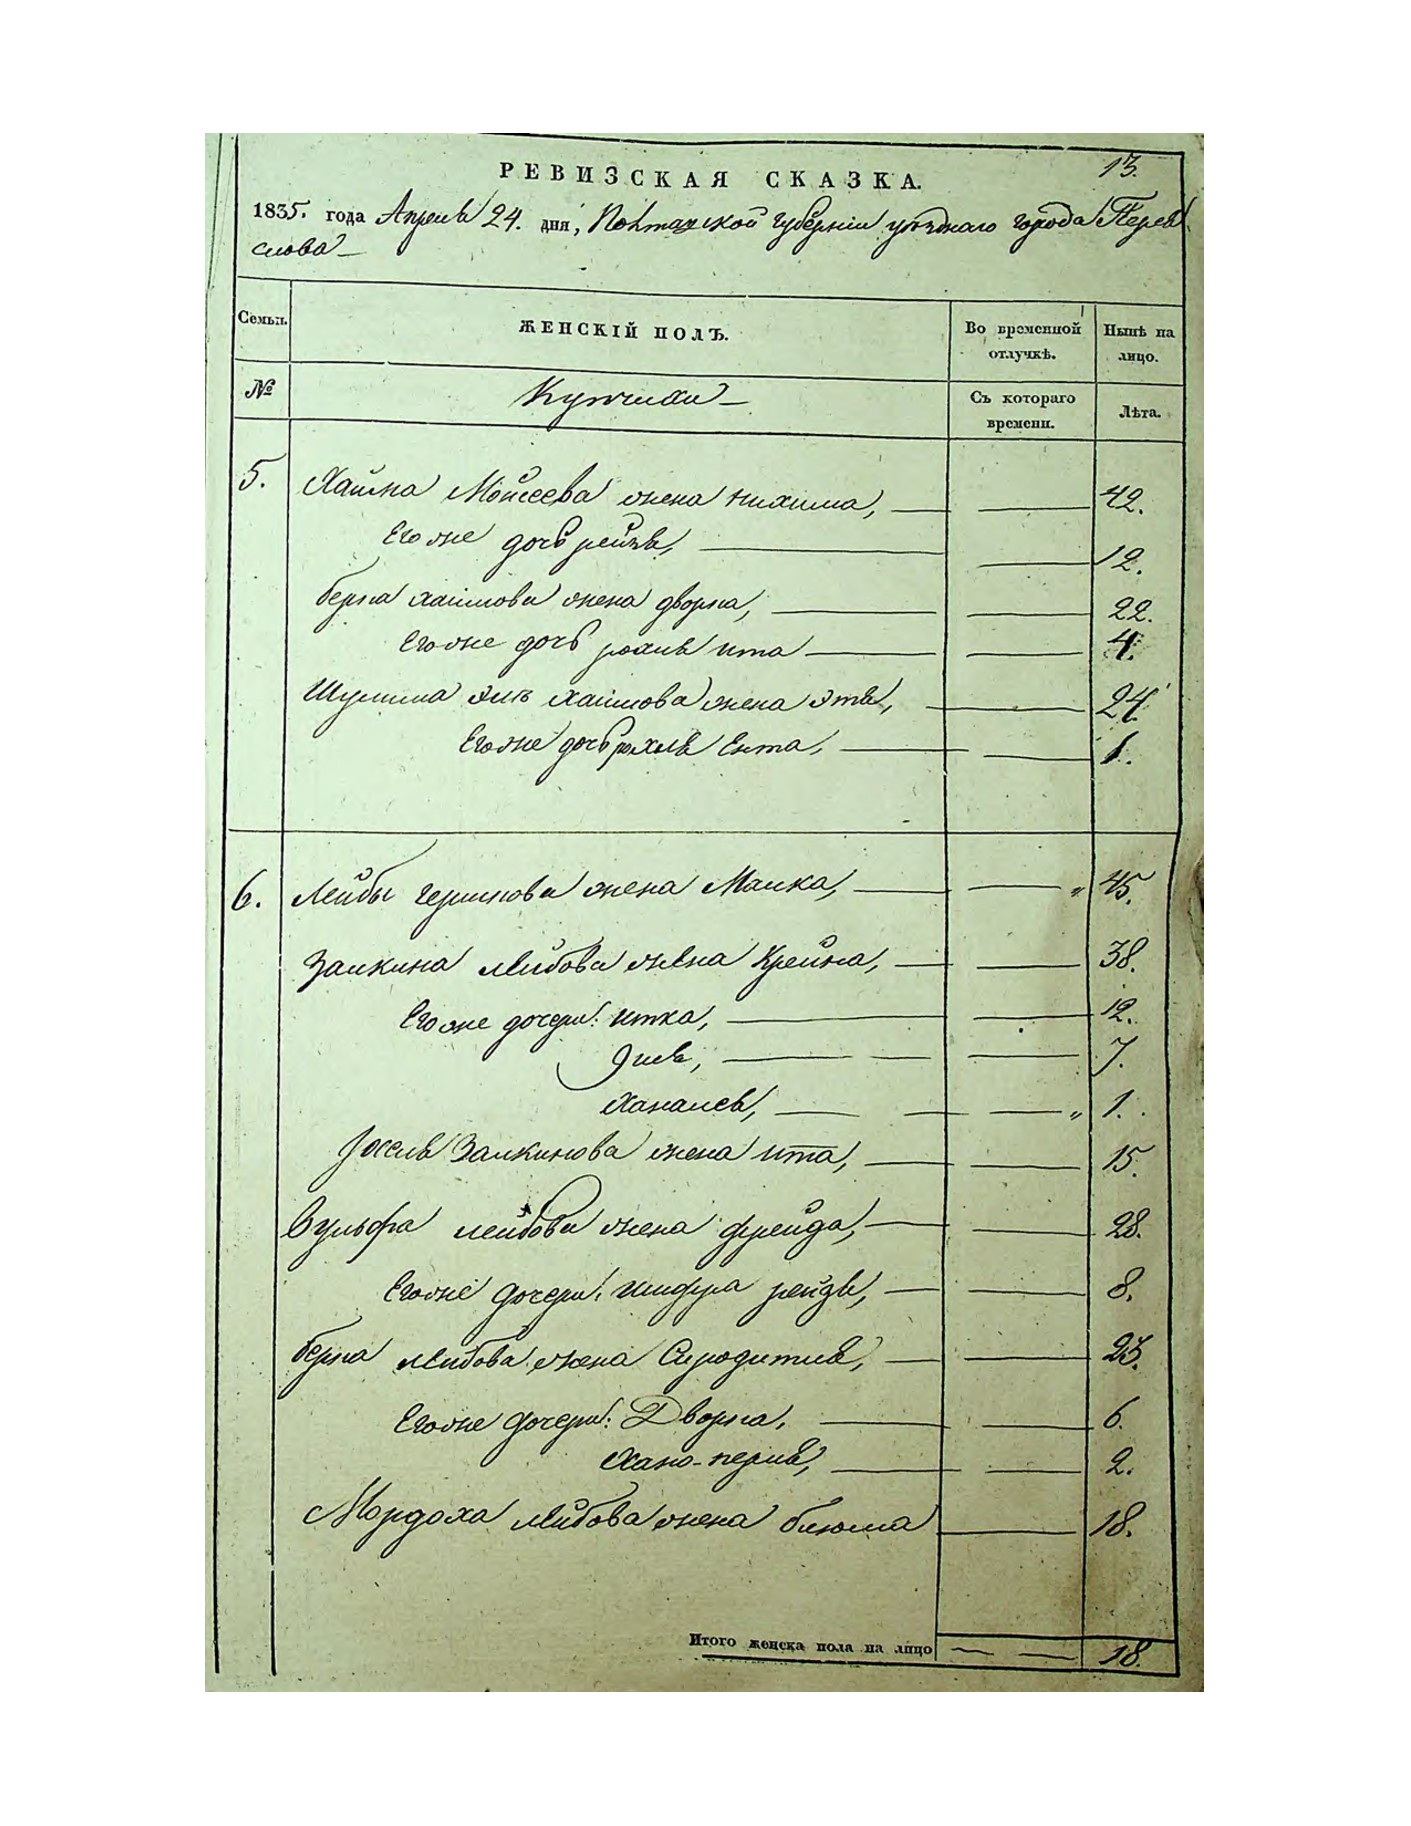 13.
РЕВИЗСКАЯ СКАЗКА.
1835. года Апреля 24. дня, Полтавской губерніи уѣзднаго города Перея
слова
Семьи. ЖЕНСКІЙ ПОЛЪ. Во временной отлучкѣ. Нынѣ на лицо.
№ Купчихи Съ котораго времени. Лѣта.
5. Хайма Мойсеева жена Нихима, 42.
Его же дочь рейзя, 12.
берка хаимова жена дворка, 22.
Его же дочь рохля ита 4.
Шулима хаимова жена Этя, 24
Его же дочь рохля Ента, 1.
6. Лейбы гершкова жена Малка, 45.
Залкина лейбова жена Крейна, 38.
Его же дочери: итка, 12.
7.
1.
Іосель Залкинова жена ита, 15.
Вульфа лейбова жена фрейда, 28.
Его же дочери: шифра рейзя, 8.
берка лейбова жена 23.
Его же дочери: Дворка, 6.
Хано-перля, 2.
Мордоха лейбова жена блюма 18.
Итого женска пола на лицо 18.